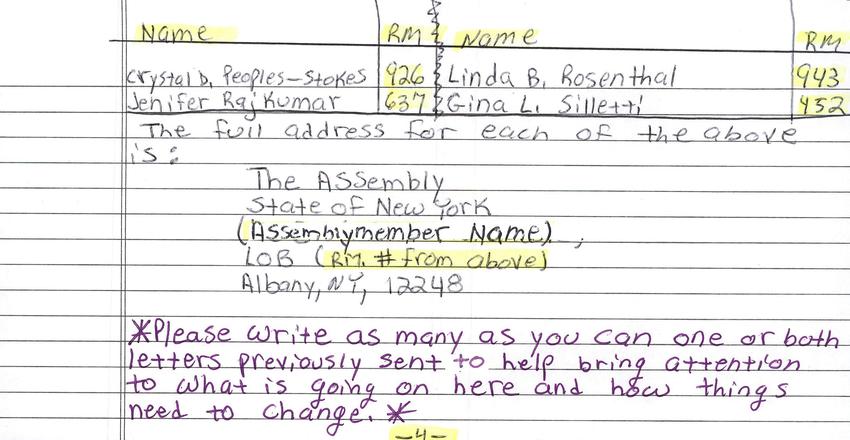 Name RM Name RM
Crystal D. Peoples-Stokes 926 Linda B. Rosenthal 943
Jenifer Rajkumar 637 Gina L. Silletti 452
The full address for each of the above
is:
The Assembly
State of New York
(Assemblymember Name),
LOB (RM. # from above)
Albany, NY, 12248
*Please write as many as you can one or both
letters previously sent to help bring attention
to what is going on here and how things
need to change.*
-4-